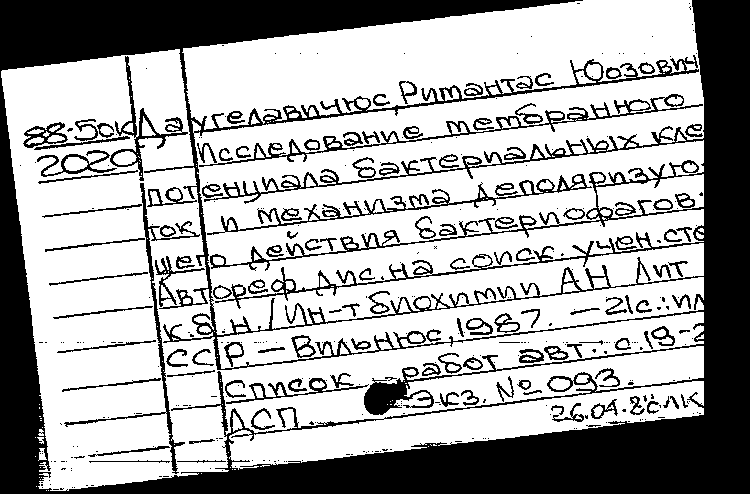 88-5ок Даугелавичюс, Римантас Юозович
2020 Исследование мембранного
потенциала бактериальных кле
ток и механизма деполяризую-
щего действия бактериофагов:
Автореф. дис. на соиск. учен. сте
к.б.н. / Ин-т биохимии АН Лит
ССР. — Вильнюс, 1987. — 21с.: ил
Список работ авт.: с. 19-2
ДСП. Экз. № 093.
26.04.88